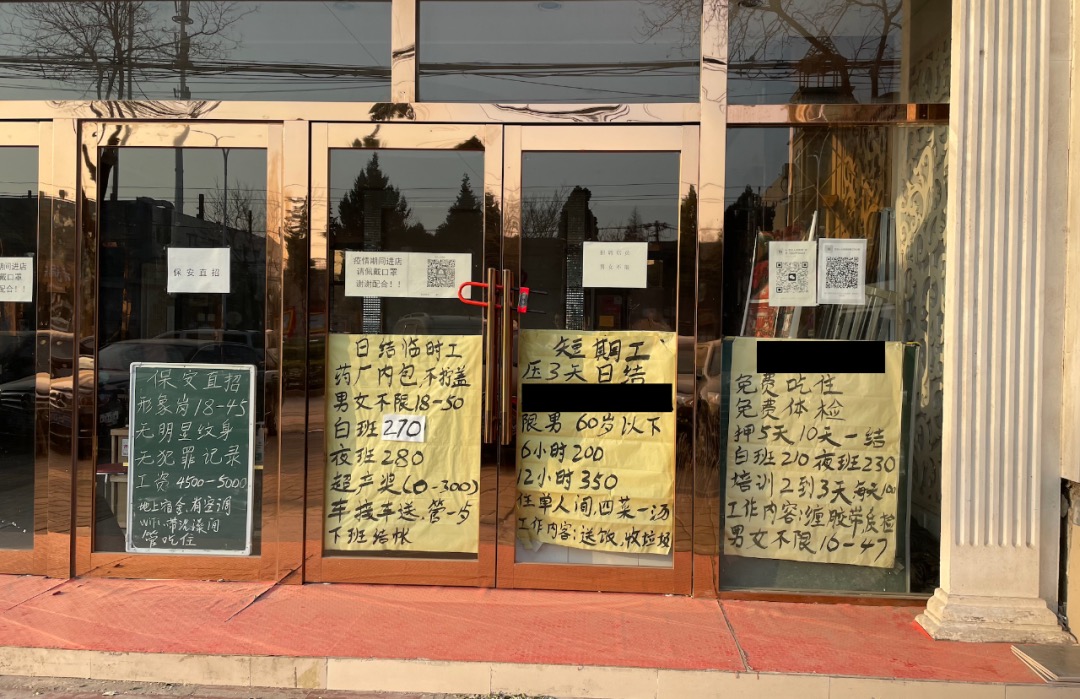 间进店
戴口罩
配合！！
保安直招
疫情期间进店
请佩戴口罩
谢谢配合！！
保安直招
形象岗18-45
无明显纹身
无犯罪记录
工资4500-5000
地上宿舍.有空调
WiFi.带洗澡间
管吃住
日结临时工
药厂内包不拧盖
男女不限18-50
白班270
夜班280
超产奖(0-300)
车接车送,管一步
下班结帐
短期工
压3天日结
限男60岁以下
6小时200
12小时350
住单人间,四菜一汤
工作内容:送饭,收垃圾
免费吃住
免费体检
押5天10天一结
白班210夜班230
培训2到3天每天100
工作内容:缠胶带质检
男女不限16-47